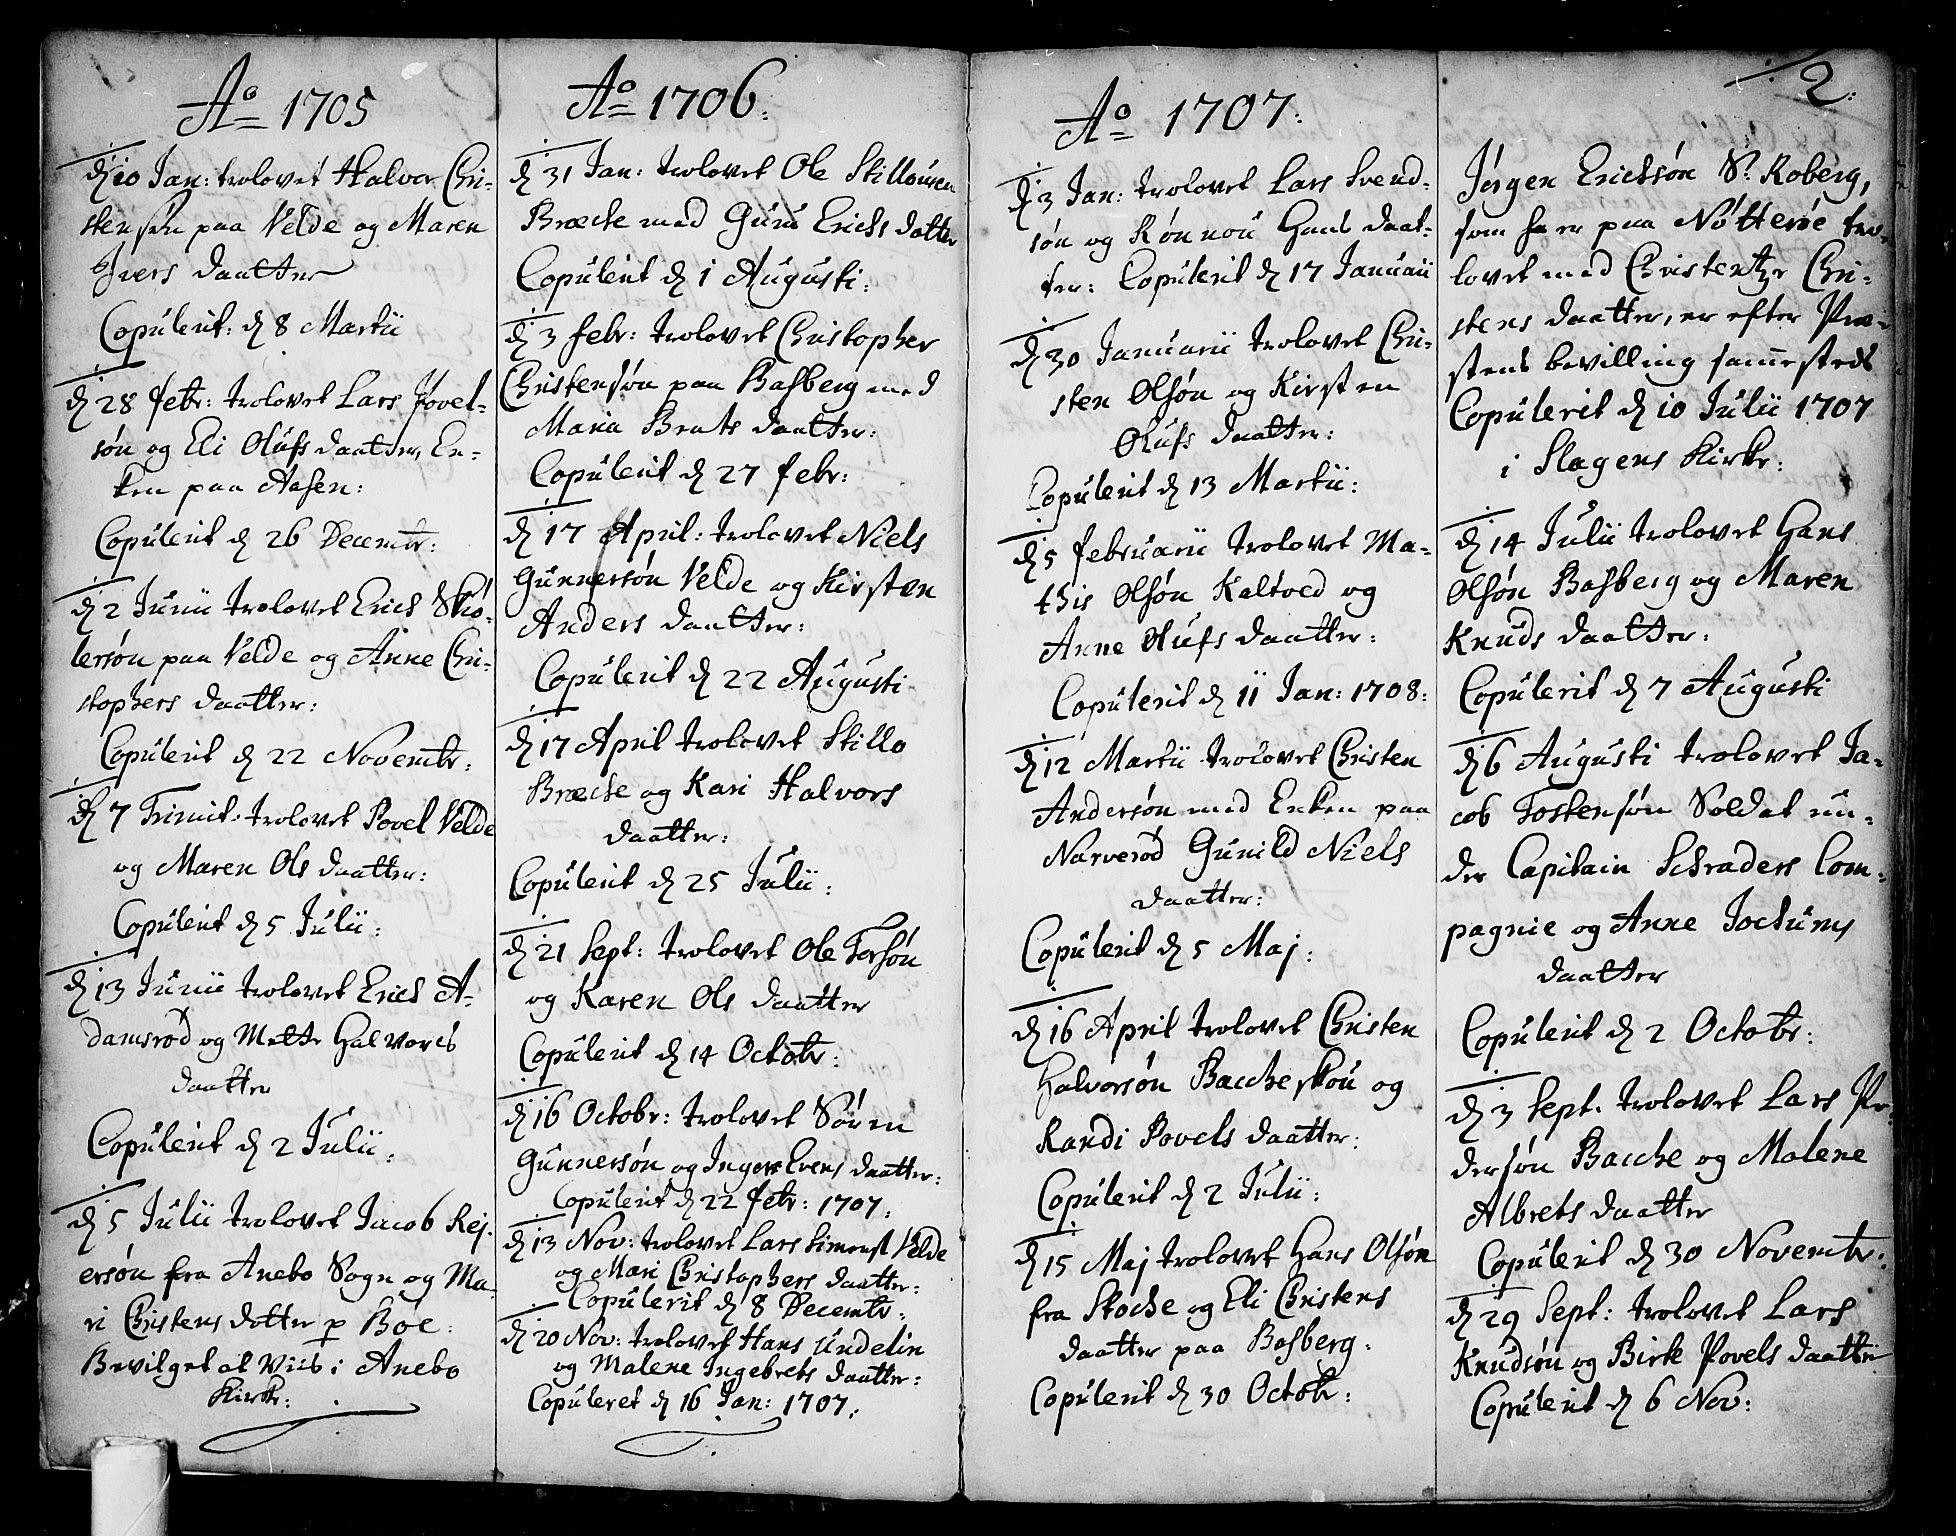 Ao 1705
d 10 Jan: trolovet Halvor Chri-
stensøn paa Velde og Maren
Ivers daatter
Copulerit: d 8 Martii
d 28 febr: trolovet Lars Povel-
søn og Eli Olufs daatter, En-
ken paa Aasen:
Copulerit d 26 Decembr:
d 2 Junii trolovet Erich
lersøn paa Velde og Anne Chri-
stophers daatter:
Copulerit d 22 Novembr:
d 7 Trinit: trolovet Povel Velde
og Maren Ols daatter:
Copulerit d 5 Julii:
d 13 Junii trolovet Erich A-
damsrød og Mette Halvors
daatter
Copulerit d 2 Julii:
d 5 Julii trolovet Jacob Rej-
ersøn fra Anebo Sogn og Ma-
ri Christens dotter p Boe:
Bevilget at viis i Anebo
Kirke:
Ao 1706:
d 31 Jan: trolovet Ole Stillousen
Bræcke med Guru Erichs dotter
Copulerit d 1 Augusti:
d 3 febr: trolovet Christopher
Christensøn paa Basberg med
Maria Brats daatter:
Copulerit d 27 febr:
d 17 April: trolovet Niels
Gunnersøn Velde og Kirsten
Anders daatter:
Copulerit d 22 Augusti
d 17 April trolovet Stillo
Bræcke og Kari Halvors
daatter:
Copulerit d 25 Julii:
d 21 Sept: trolovet Ole Torsøn
og Karen Ols daatter
Copulerit d 14 Octobr:
d 16 Octobr: trolovet Søren
Gunnersøn og Inger Evens daatter:
Copulerit d 22 febr: 1707:
d 13 Nov: trolovet Lars Simonsl Velde
og Mari Christophers daatter:
Copulerit d 8 Decembr:
d 20 Nov: trolovet Hans Undelin
og Malene Ingebrets daatter:
Copuleret d 16 Jan: 1707:
Ao 1707:
d 3 Jan: trolovet Lars Svend-
søn og Rønnou Hans daat-
ter: Copulerit d 17 Januarii
d 30 Januarii trolovet Chri-
sten Olsøn og Kirsten
Olufs daatter:
Copulerit d 13 Martii:
d 5 februarii trolovet Ma-
this Olsøn Kaltved og
Anne Olufs daatter:
Copulerit d 11 Jan: 1708:
d 12 Martii trolovet Christen
Andersøn med Enken paa
Narverød Gunild Niels
daatter:
Copulerit d 5 Maj:
d 16 April trolovet Christen
Halvorsøn Baccheskou og
Randi Povels daatter:
Copulerit d 2 Julii:
d 15 Maj trolovet Hans Olsøn
fra Stocke og Eli Christens
daatter paa Basberg:
Copulerit d 30 Octobr:
2:
Jørgen Ericksøn Sr. Roberg,
som her paa Nøtterøe tro-
lovet med Christentze Chri-
stens daatter, er efter Præ-
stens bevilling sammesteds
Copulerit d 10 Julii 1707
i Slagens Kirke:
d 14 Julii trolovet Hans
Olsøn Basberg og Maren
Knuds daatter:
Copulerit d 7 Augusti
d 6 Augusti trolovet Ja-
cob Tostensøn Soldat un-
der Capitain Schraders Com-
pagnie og Anne Jochums
daatter
Copulerit d 2 Octobr:
d 3 Sept. trolovet Lars Pe-
dersøn Bacche og Malene
Albrets daatter
Copulerit d 30 Novembr:
d 29 Sept: trolovet Lars
Knudsøn og Birte Povels daatter
Copulerit d 6 Nov: